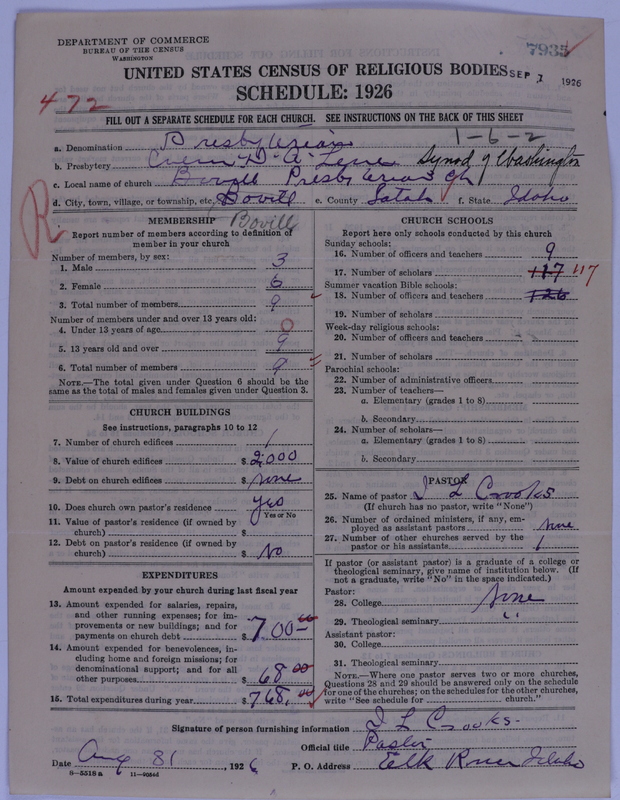 DEPARTMENT OF COMMERCE
BUREAU OF THE CENSUS
WASHINGTON
7935
UNITED STATES CENSUS OF RELIGIOUS BODIES
SEP 7 1926
SCHEDULE: 1926
472
FILL OUT A SEPARATE SCHEDULE FOR EACH CHURCH. SEE INSTRUCTIONS ON THE BACK OF THIS SHEET
1-6-2
a. Denomination Presbyterian
b. Presbytery Coeur D'Alene Synod of Washington
c. Local name of church Bovill Presbyterian Ch
d. City, town, village, or township, etc. Bovill e. County Latah f. State Idaho
R
MEMBERSHIP Bovill
Report number of members according to definition of
member in your church
Number of members, by sex:
1. Male 3
2. Female 6
3. Total number of members 9
Number of members under and over 13 years old:
4. Under 13 years of age 0
5. 13 years old and over 9
6. Total number of members 9
NOTE.—The total given under Question 6 should be the
same as the total of males and females given under Question 3.
CHURCH BUILDINGS
See instructions, paragraphs 10 to 12
7. Number of church edifices 1
8. Value of church edifices $ 2,000
9. Debt on church edifices $ none
10. Does church own pastor's residence yes
Yes or No
11. Value of pastor's residence (if owned by
church) $
12. Debt on pastor's residence (if owned by
church) $ No
EXPENDITURES
Amount expended by your church during last fiscal year
13. Amount expended for salaries, repairs,
and other running expenses; for im-
provements or new buildings; and for
payments on church debt $ 700 00
14. Amount expended for benevolences, in-
cluding home and foreign missions; for
denominational support; and for all
other purposes $ 68 00
15. Total expenditures during year $ 768.00
CHURCH SCHOOLS
Report here only schools conducted by this church
Sunday schools:
16. Number of officers and teachers 9
17. Number of scholars 117 117
Summer vacation Bible schools:
18. Number of officers and teachers 126
19. Number of scholars
Week-day religious schools:
20. Number of officers and teachers
21. Number of scholars
Parochial schools:
22. Number of administrative officers
23. Number of teachers—
a. Elementary (grades 1 to 8)
b. Secondary
24. Number of scholars—
a. Elementary (grades 1 to 8)
b. Secondary
PASTOR
25. Name of pastor J L Crooks
(If church has no pastor, write "None")
26. Number of ordained ministers, if any, em-
ployed as assistant pastors none
27. Number of other churches served by the
pastor or his assistants 1
If pastor (or assistant pastor) is a graduate of a college or
theological seminary, give name of institution below. (If
not a graduate, write "No" in the space indicated.)
Pastor:
28. College none
29. Theological seminary "
Assistant pastor:
30. College
31. Theological seminary
NOTE.—Where one pastor serves two or more churches,
Questions 28 and 29 should be answered only on the schedule
for one of the churches; on the schedules for the other churches,
write "See schedule for church."
Signature of person furnishing information J L Crooks
Official title Pastor
Date Aug 31, 1926 P. O. Address Elk River Idaho
8—5518 a